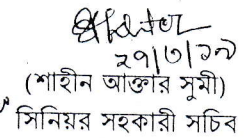 ২৭/৩/১৭
(শাহীন আক্তার সুমী)
সিনিয়র সহকারী সচিব